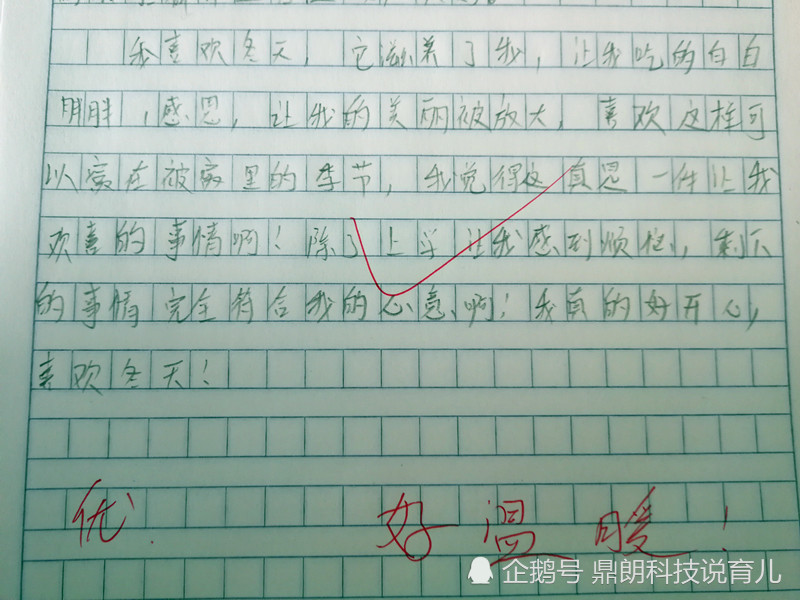 我喜欢冬天，它滋养了我，让我吃的白白
胖胖，感恩，让我的美丽被放大，喜欢这样可
以窝在被窝里的季节，我觉得这真是一件让我
欢喜的事情啊！除了上学让我感到烦恼，剩下
的事情完全符合我的心意啊！我真的好开心，
喜欢冬天！
优 好温暖！
企鹅号 鼎朗科技说育儿